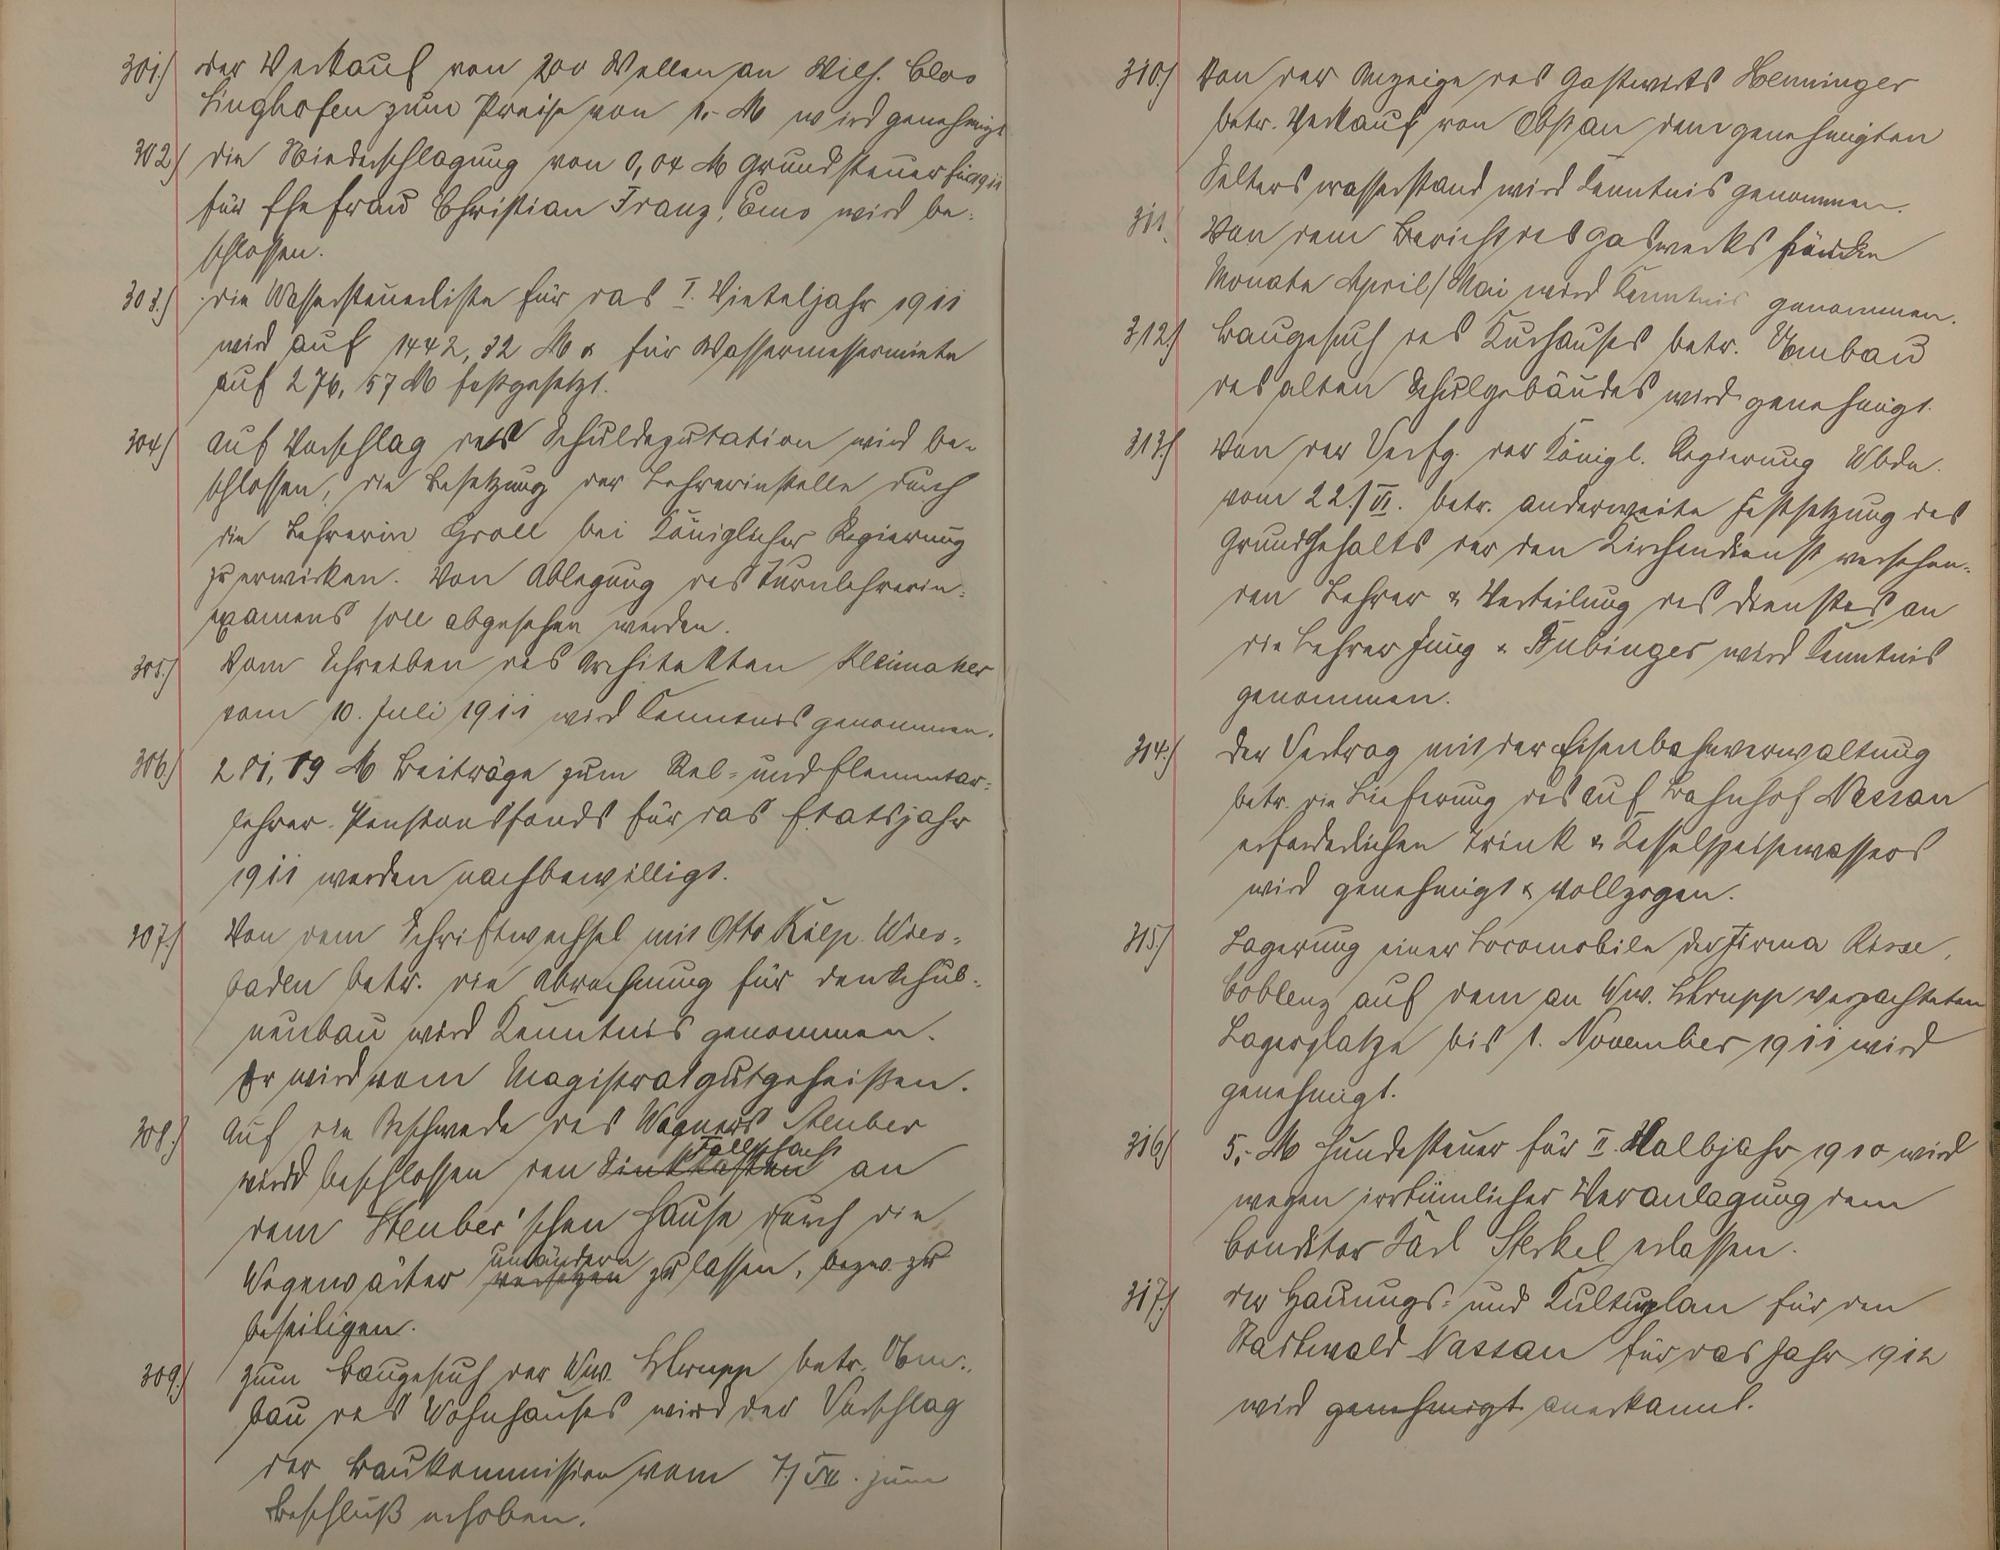 301.) Der Verkauf von 200 Wellen an Wilh. Clos
Singhofen zum Preise von 1.- M wird genehmigt
302.) die Niederschlagung von 0,04 M Grundsteuer für 1911
für Ehefrau Christian Franz, Ems wird be-
schlossen.
303.) die Wassersteuerliste für das I. Vierteljahr 1911
wird auf 1442,32 M & für Wassermessermiete
auf 276,57 M festgesetzt.
304.) auf Vorschlag der Schuldeputation wird be-
schlossen, die Besetzung der Lehrerinstelle durch
die Lehrerin Groll bei Königlicher Regierung
zu erwirken. Von Ablegung des Turnlehrerin-
examens soll abgesehen werden.
305.) Vom Schreiben des Architekten
vom 10. Juli 1911 wird Kenntnis genommen.
306.) M Beiträge zum Rel- und Elementar-
lehrer-Pensionsfonds für das Etatsjahr
1911 werden nachbewilligt.
307.) Von dem Schriftwechsel mit Otto Kilp Wies-
baden betr. die Abrechnung für den Schul-
neubau wird Kenntnis genommen.
Er wird vom Magistrat gutgeheißen.
308.) Auf die Beschwerde des Wagners Steuber
wird beschlossen den Sinkkasten Fallschacht an
dem Steuber'schen Hause durch die
Wegewärter versetzen umändern zu lassen, bezw. zu
beseitigen.
309.) Zum Baugesuch der Ww. betr. Um-
bau des Wohnhauses wird der Vorschlag
der Baukommission vom 7./VII. zum
Beschluß erhoben.
310.) Von der Anzeige des Gastwirts Henninger
betr. Verkauf von Obst an dem genehmigten
Selterswasserstand wird Kenntnis genommen.
311. Von dem Bericht des Gaswerks für die
Monate April/Mai wird Kenntnis genommen.
312.) Baugesuch des Kurhauses betr. Umbau
des alten Schulgebäudes wird genehmigt.
313.) Von der Verfg. der Königl. Regierung Wbdn.
vom 22./VI. betr. anderweite Festsetzung des
Grundgehalts der den Kirchendienst versehen-
den Lehrer & Verteilung des Dienstes an
die Lehrer Jung & wird Kenntnis
genommen.
314.) Der Vertrag mit der Eisenbahnverwaltung
betr. die Lieferung des auf Bahnhof Nassau
erforderlichen Trink & Kesselspeisewassers
wird genehmigt & vollzogen.
315.) Lagerung einer Locomobile der Firma
Coblenz auf dem an Ww. verpachteten
Lagerplatze bis 1. November 1911 wird
genehmigt.
316.) 5,- M Hundesteuer für II. Halbjahr 1910 wird
wegen irrtümlicher Veranlagung dem
Conditor Karl Sterkel erlassen.
317.) Der Hauungs- und Kulturplan für den
Stadtwald Nassau für das Jahr 1912
wird genehmigt anerkannt.